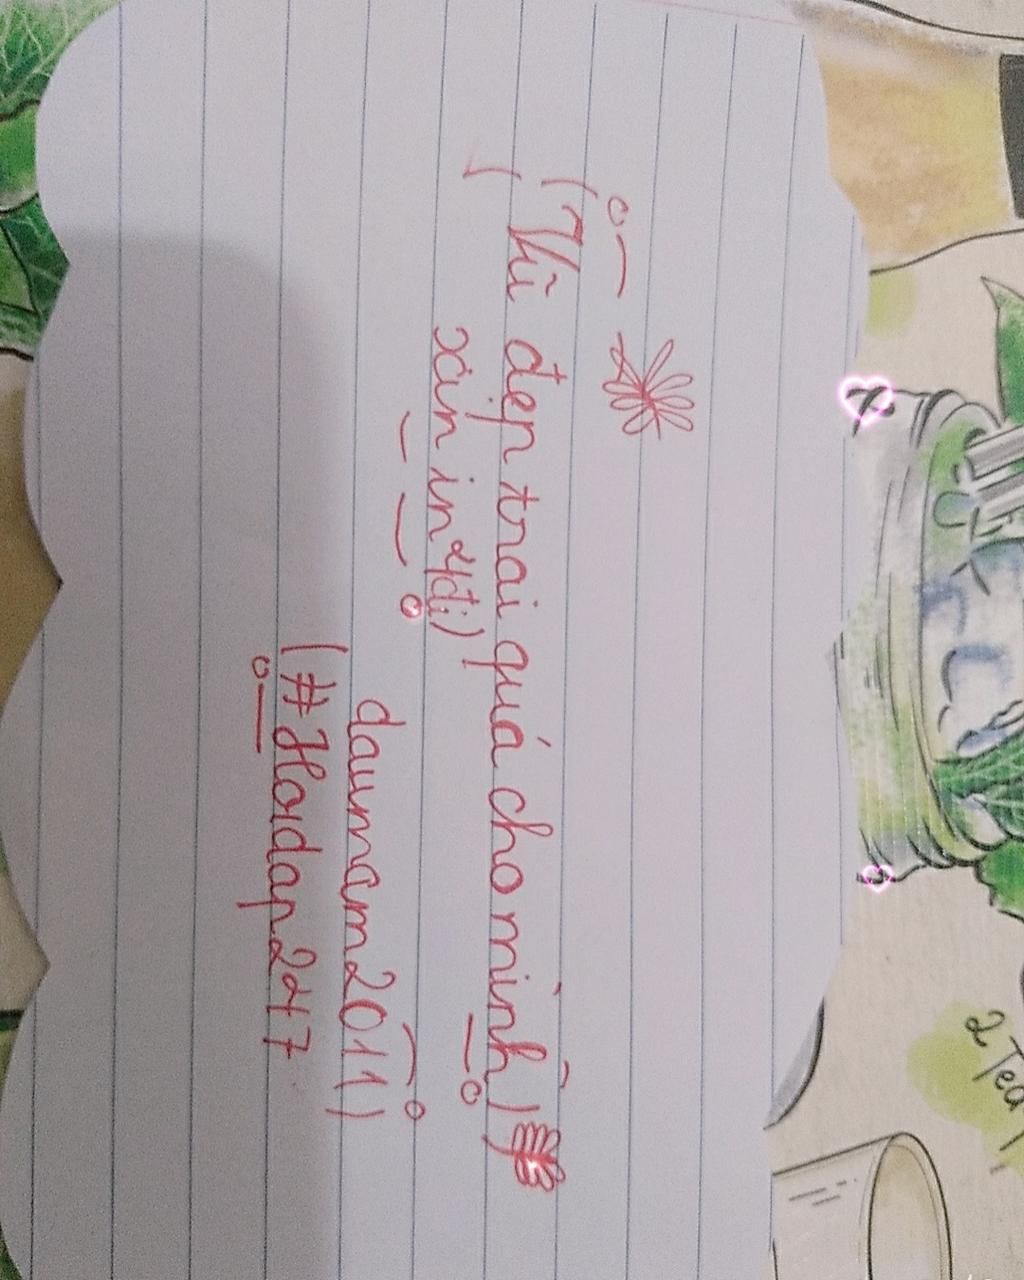 (Thì đẹp trai quá cho mình)
xin in4 đi)
daumam2011)
(#Hoidap247
2 Tea